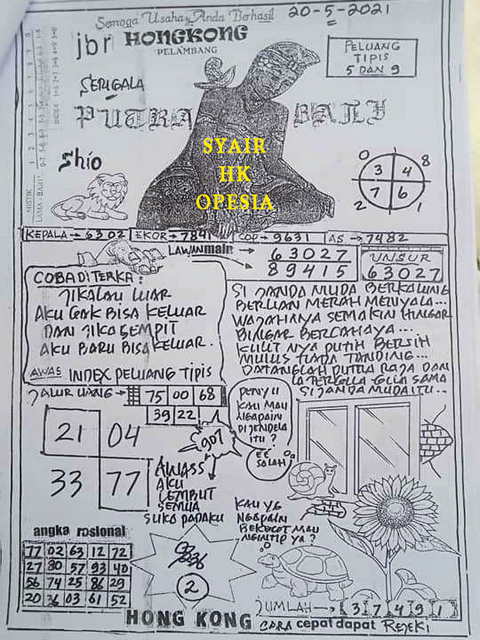 Semoga Usaha Anda Berhasil
20-5-2021
jbr HONGKONG
PELAMBANG
PELUANG
TIPIS
5 DAN 9
SERIGALA
PUTRA BALI
Shio
SYAIR
HK
OPESIA
0 8
3 4
7 6
2 1
KEPALA→6302 EKOR→7841 COP→9631 AS→7482
LAWAN main → 63027
→ 89415
UNSUR
63027
COBA DITERKA:
JIKALAU LUAR
AKU GAK BISA KELUAR
DAN JIKA SEMPIT
AKU BARU BISA KELUAR.
AWAS INDEX PELUANG TIPIS
SI JANDA MUDA BERKALUNG
BERLIAN MERAH MENYALA...
WAJAHANYA SEMAKIN HINGAR
BINGAR BERCAHAYA...
KULIT NYA PUTIH BERSIH
MULUS TIADA TANDING...
DATANGLAH PUTRA RAJA DAN
LA TERGILA GILA SAMA
SI JANDA MUDA ITU...
JALUR UANG → 75 00 68
39 22
PENYU
KAU MAU
NGAPAIN
DI JENDELA
ITU?
EE
SALAH
21 04
33 77
907
AWASS
AKU
LEMBUT
SEMUA
SUKA PADAKU
KAU YG
NGAPAIN
MAU
NGINTIP YA?
angka rasional
77 02 63 12 72
27 80 57 93 40
56 74 25 86 29
20 36 03 61 52
2
JUMLAH → 3 7 4 9 1
HONG KONG CARA cepat dapat REJEKI